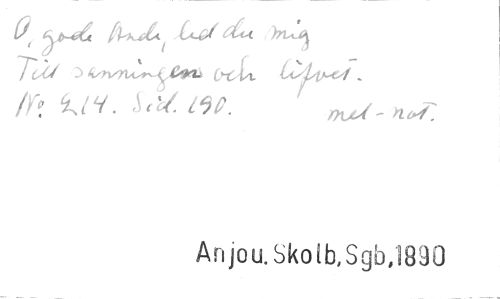 O, gode Ande, led du mig
Till sanningen och lifvet.
No 214. Sid. 190. mel-not.
Anjou. Skolb, Sgb, 1890